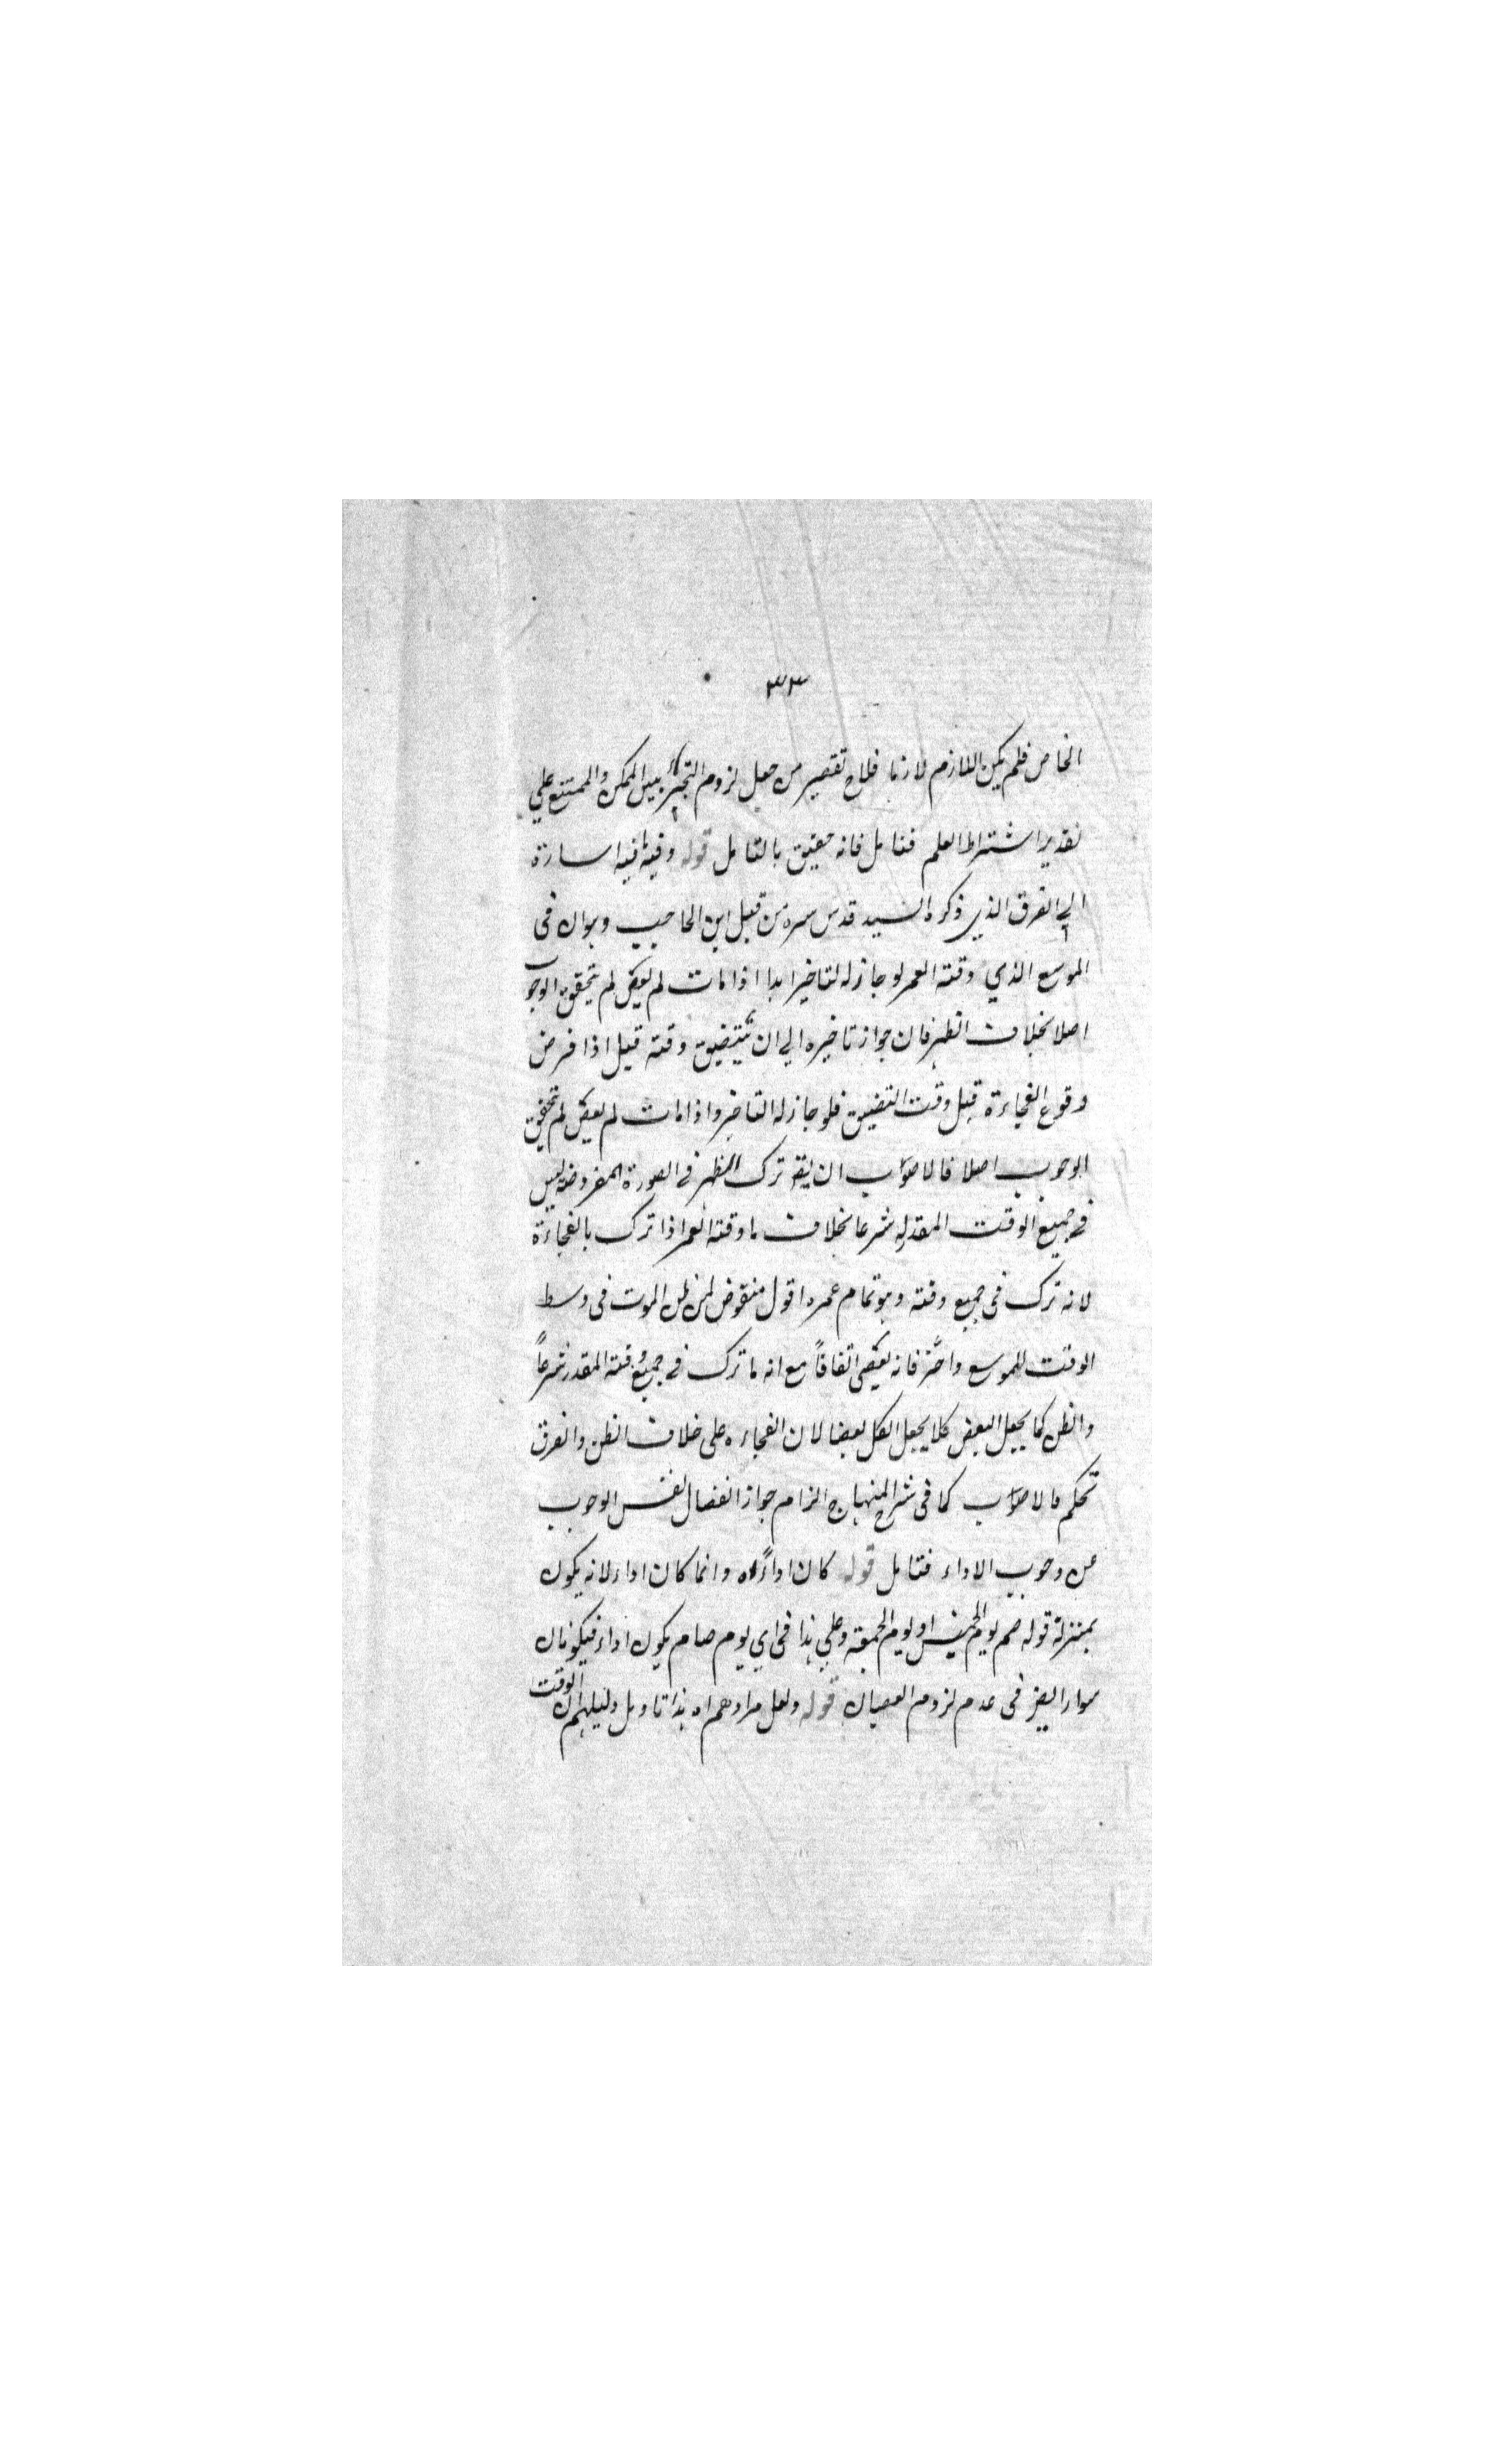 ٣٣
الخاص فلم يكن اللازم لازما فلاح تقصير من جعل لزوم التخيير بين الممكن والممتنع علي
تقدير اشتراط العلم فتامل فانه حقيق بالتامل قوله وفيه ما فيه اشارة
الي الفرق الذي ذكره السيد قدس سره من قبل ابن الحاجب وهو ان في
الموسع الذي وقته العمر لو جاز له التاخير ابدا اذا مات لم يعص لم يتحقق الوجوب
اصلا بخلاف الظهر فان جواز تاخيره الي ان يتضيق وقته قيل اذا فرض
وقوع الفجاءة قبل وقت التضيق فلو جاز له التاخير واذا مات لم يعص لم يتحقق
الوجوب اصلا فالاصوب ان يقو ترك الظهر في الصورة المفروضة ليس
في جميع الوقت المقدر له شرعا بخلاف ما وقته العمر اذا ترك بالفجاءة
لانه ترك في جميع وقته وهو تمام عمره اقول منقوض بمن ظن الموت في وسط
الوقت للموسع واخر فانه يعصي اتفاقاً مع انه ما ترك في جميع وقته المقدر شرعاً
والظن كما يجعل البعض كلا يجعل الكل بعضا لان الفجاءه علي خلاف الظن والفرق
تحكم فالاصوب كما في شرح المنهاج الزام جواز انفصال نفس الوجوب
عن وجوب الاداء فتامل قوله كان اداءً اه وانما كان اداء لانه يكون
بمنزلة قوله صم يوم الخميس او يوم الجمعة وعلي هذا في اي يوم صام يكون اداء فيكونان
سواء ايض في عدم لزوم العصيان قوله ولعل مرادهم اه هذا تاويل دليلهم ان الوقت